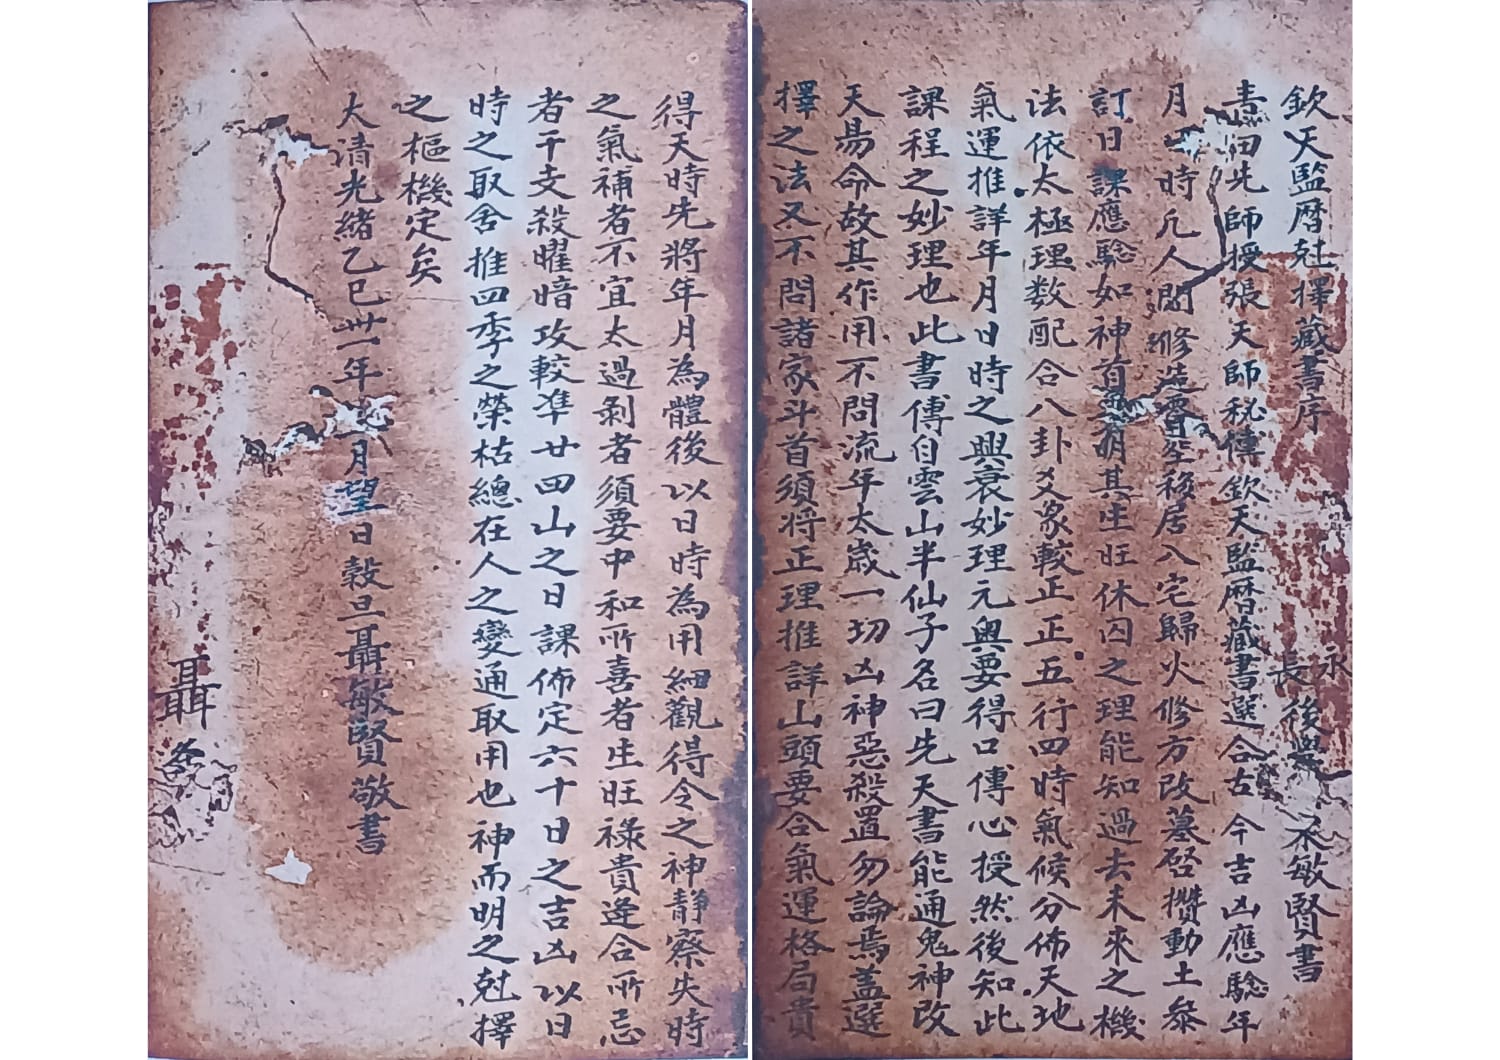 欽天監曆尅擇藏書序
永長後學聶敏賢書
師授張天師秘傳欽天監曆藏書選合古今吉凶應驗年
月時凡人間修造豎移居入宅歸火修方改墓啓攢動土叅
訂日課應驗如神首明其生旺休囚之理能知過去未來之機
法依太極理数配合八卦爻象較正正五行四時氣候分佈天地
氣運推詳年月日時之興衰妙理元奧要得口傳心授然後知此
課程之妙理也此書傳自雲山半仙子名曰先天書能通鬼神改
天易命故其作用不問流年太歲一切凶神惡殺置勿論焉盖選
擇之法又不問諸家斗首須将正理推詳山頭要合氣運格局貴
得天時先將年月為體後以日時為用細觀得令之神静察失時
之氣補者不宜太過剝者須要中和所喜者生旺祿貴逢合所忌
者干支殺曜暗攻較準廿四山之日課佈定六十日之吉凶以日
時之取舍推四季之榮枯總在人之變通取用也神而明之尅擇
之樞機定矣
大清光緒乙巳卅一年月望日穀旦聶敏賢敬書
聶